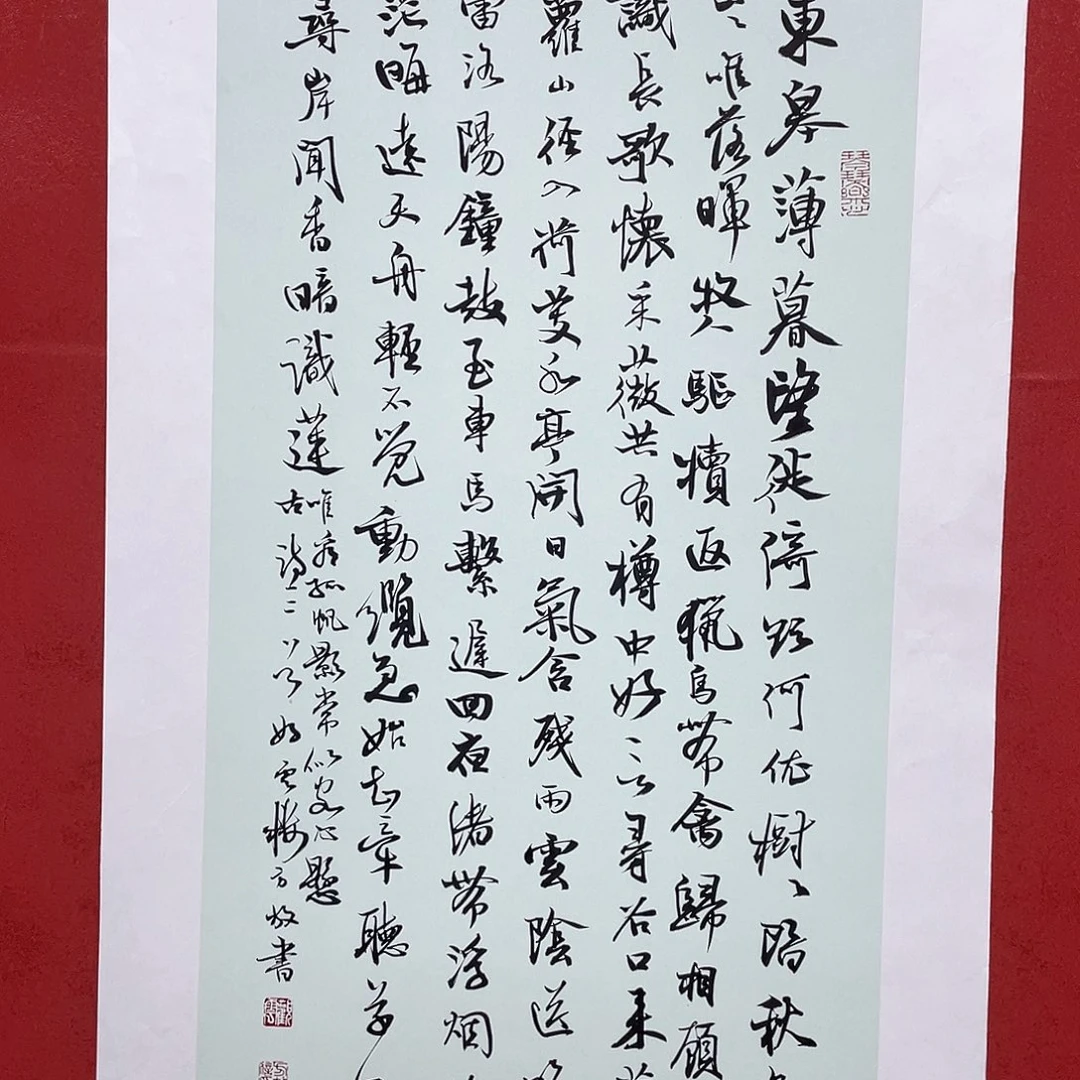 東皋薄暮望徙倚欲何依樹々皆秋
々唯落暉牧人驅犢返獵馬帶禽歸相顧
識長歌懷采薇共有樽中好言尋谷口来薜
蘿山徑入荷芰水亭開日氣含殘雨雲陰送晚
雷洛陽鐘鼓至車馬繫遲回夜渚帶浮烟
茫晦遠天舟輕不覺動纜急始知牽聽笛
尋岸聞香暗識蓮唯看孤帆影常似客心懸
古詩三首 雲樓方放書